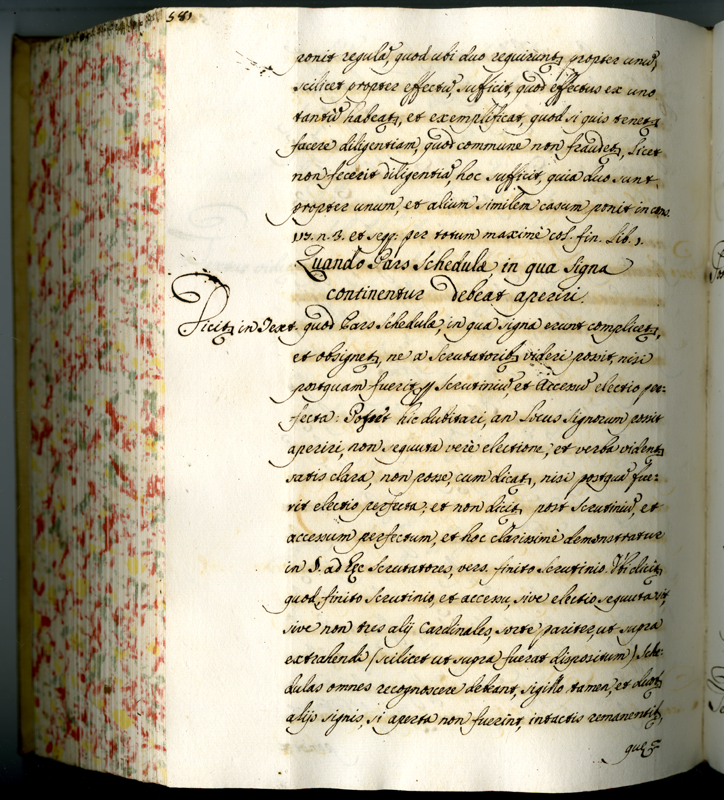 581
ponit regulã, quod ubi duo requirunt~, propter unũ,
scilicet propter effectũ, sufficit, quod effectus ex uno
tantũ habeat~, et exemplificat, quod si quis tenet~
facere diligentiam, quod commune non fraudet~, licet
non fecerit diligentiã, hoc sufficit, quia duo sunt
propter unum, et alium similem casum ponit in cons.
113. n. 3. et seqq. per totum maximè col. fin. Lib. 1.
Quando Pars Schedulæ in qua Signa
continentur debeat aperiri.
Dicit~ in Text. quod Pars Schedulæ, in qua signa erunt complicet~,
et obsignet~, ne a Scrutatorib~ videri possit, nisi
postquam fuerit Scrutiniũ, et Accessũ electio per=
fecta: Posset hic dubitari, an locus Signorum possit
aperiri, non sequuta verè electione, et verba vident~
satis clara, non posse, cum dicat~, nisi postquã fue=
rit electio perfecta, et non dicit~ post Scrutiniũ, et
accessum perfectum, et hoc clarissimè demonstratur
in §. ad Scrutatores, vers. finito Scrutinio. Ubi dicit~
quod, finito Scrutinio, et accessu, sive electio sequuta sit,
sive non tres alij Cardinales sorte pariter, ut supra
extrahendi (scilicet ut supra fuerat dispositum) Sche=
dulas omnes recognoscere debeant, sigillo tamen, et
alijs signis, si aperta non fuerint, intactis remanentib~